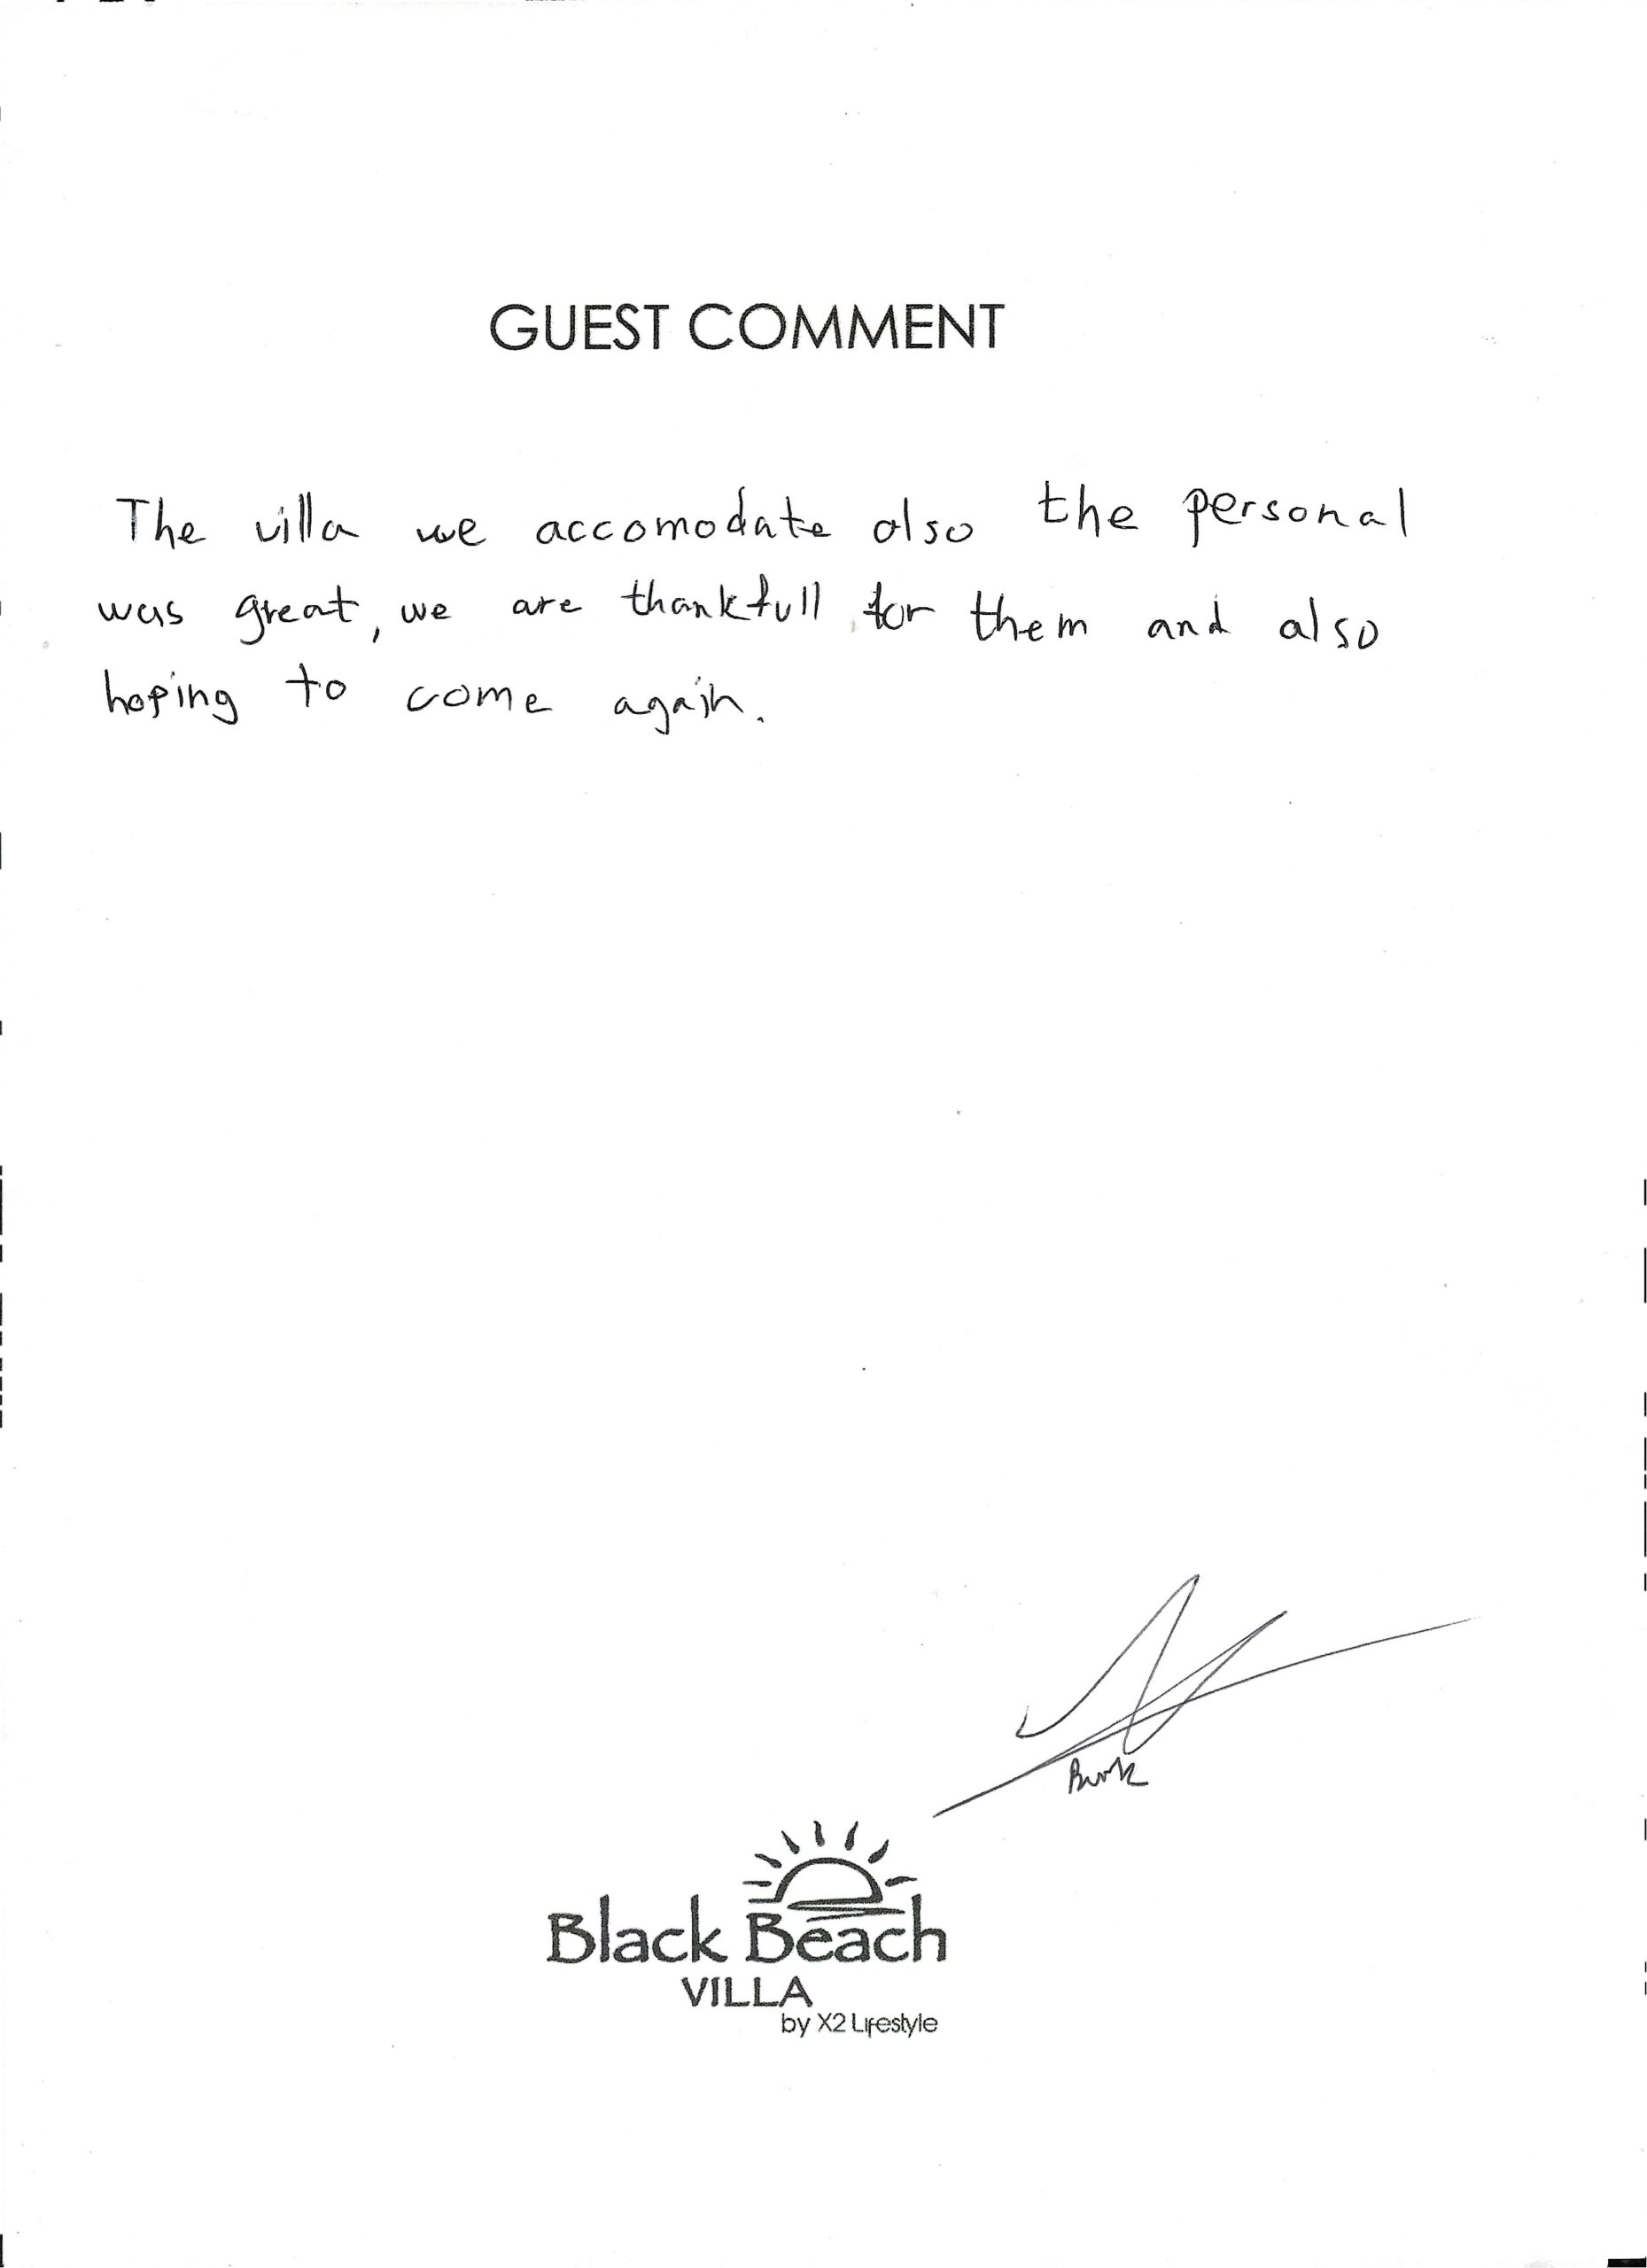 GUEST COMMENT
The villa we accomodate also the personal
was great, we are thankfull for them and also
hoping to come again.
Black Beach
VILLA
by X2 Lifestyle